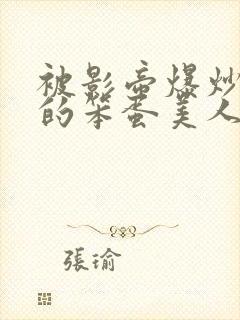 被影帝爆炒
的笨蛋美人
張瑜